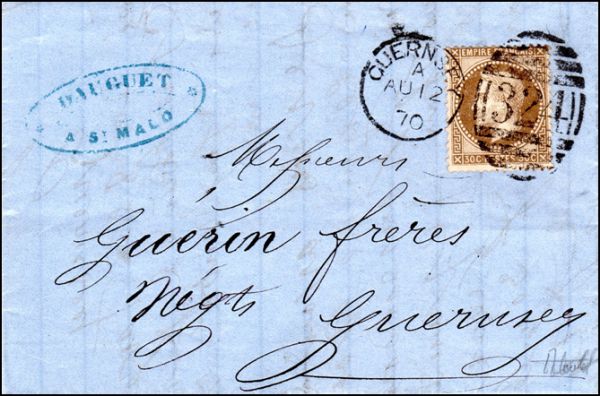 DAUGUET
A St MALO
GUERNSEY
A
AU 12
70
EMPIRE FRANÇAIS
324
30 C POSTES 30 C
Messieurs
Guérin frères
Négts Guernsey